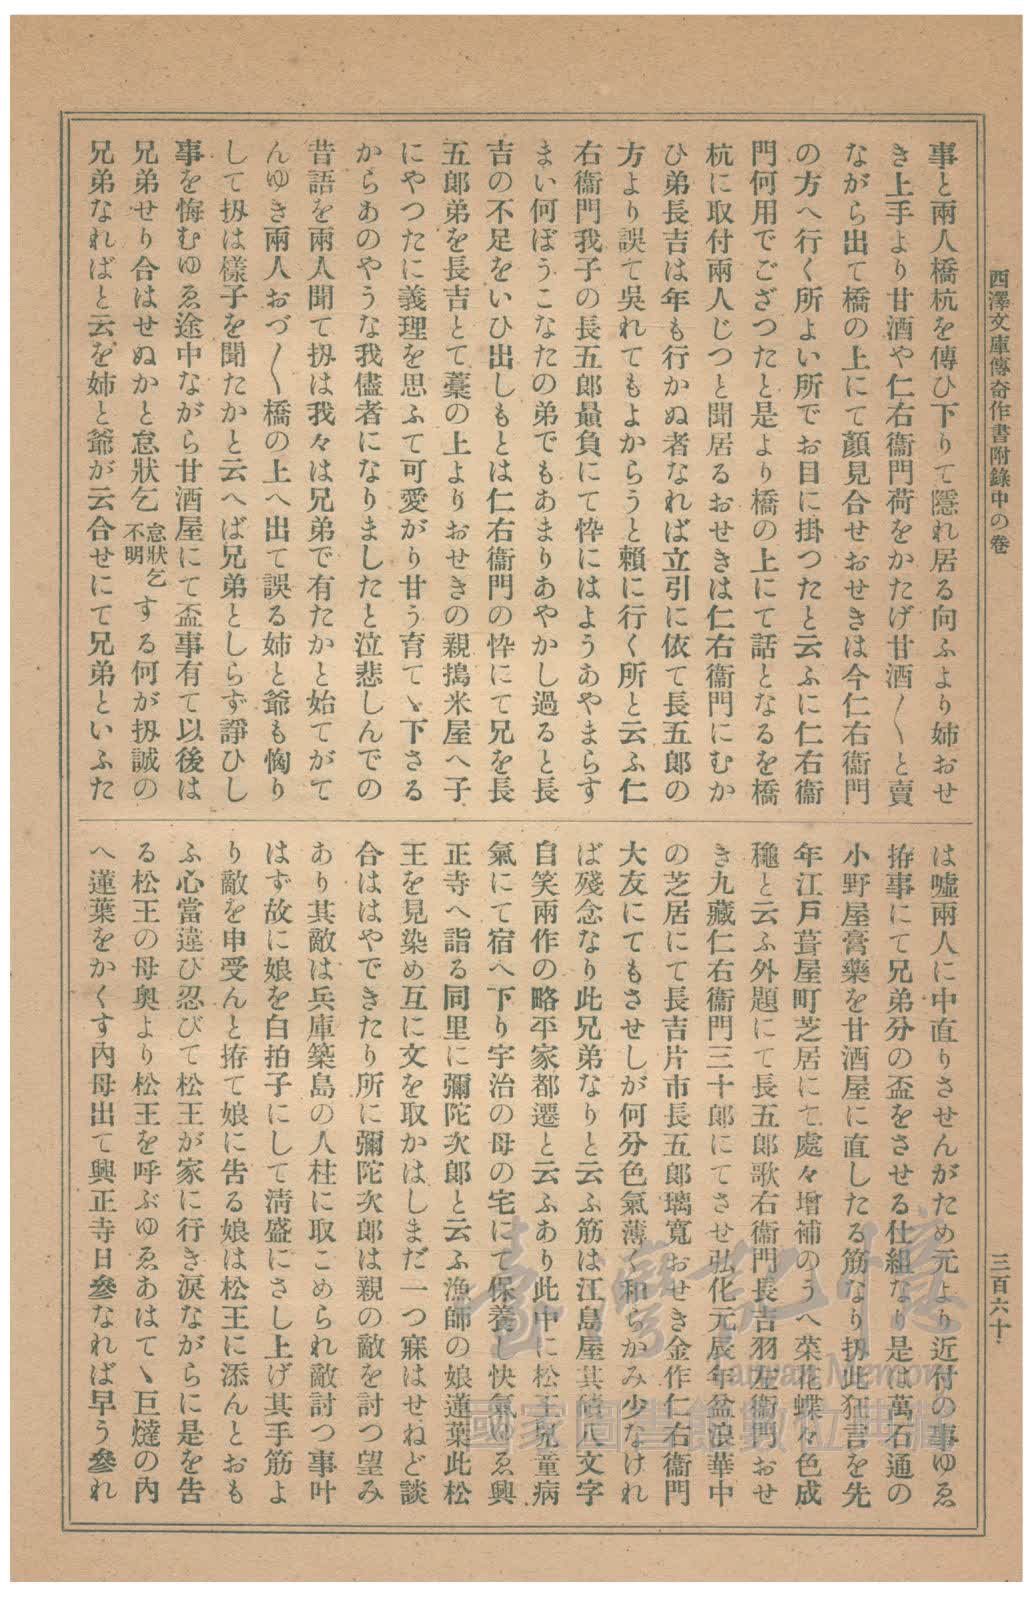 西澤文庫傳奇作書附錄中の卷
三百六十
事と兩人橋杭を傳ひ下りて隱れ居る向ふより姉おせ
き上手より甘酒や仁右衞門荷をかたげ甘酒〱と賣
ながら出て橋の上にて顏見合せおせきは今仁右衞門
の方へ行く所よい所でお目に掛つたと云ふに仁右衞
門何用でござつたと是より橋の上にて話となるを橋
杭に取付兩人じつと聞居るおせきは仁右衞門にむか
ひ弟長吉は年も行かぬ者なれば立引に依て長五郎の
方より誤て吳れてもよからうと賴に行く所と云ふ仁
右衞門我子の長五郎贔負にて忰にはようあやまらす
まい何ぼうこなたの弟でもあまりあやかし過ると長
吉の不足をいひ出しもとは仁右衞門の忰にて兄を長
五郎弟を長吉とて藁の上よりおせきの親搗米屋へ子
にやつたに義理を思ふて可愛がり甘う育てゝ下さる
からあのやうな我儘者になりましたと泣悲しんでの
昔語を兩人聞て扨は我々は兄弟で有たかと始てがて
んゆき兩人おづ〱橋の上へ出て誤る姉と爺も恟り
して扨は樣子を聞たかと云へば兄弟としらず諍ひし
事を悔むゆゑ途中ながら甘酒屋にて盃事有て以後は
兄弟せり合はせぬかと怠狀乞怠狀乞不明する何が扨誠の
兄弟なればと云を姉と爺が云合せにて兄弟といふた
は噓兩人に中直りさせんがため元より近付の事ゆゑ
拵事にて兄弟分の盃をさせる仕組なり是は萬石通の
小野屋膏藥を甘酒屋に直したる筋なり扨此狂言を先
年江戶葺屋町芝居にて處々增補のうへ菜花蝶々色成
穐と云ふ外題にて長五郎歌右衞門長吉羽左衞門おせ
き九藏仁右衞門三十郎にてさせ弘化元辰年盆浪華中
の芝居にて長吉片市長五郎璃寬おせき金作仁右衞門
大友にてもさせしが何分色氣薄く和らかみ少なけれ
ば殘念なり此兄弟なりと云ふ筋は江島屋其磧八文字
自笑兩作の略平家都遷と云ふあり此中に松王兒童病
氣にて宿へ下り宇治の母の宅にて保養し快氣ゆゑ興
正寺へ詣る同里に彌陀次郎と云ふ漁師の娘蓮葉此松
王を見染め互に文を取かはしまだ一つ寐はせねど談
合ははやできたり所に彌陀次郎は親の敵を討つ望み
あり其敵は兵庫築島の人柱に取こめられ敵討つ事叶
はず故に娘を白拍子にして淸盛にさし上げ其手筋よ
り敵を申受んと拵て娘に吿る娘は松王に添んとおも
ふ心當違ひ忍びて松王が家に行き淚ながらに是を吿
る松王の母奧より松王を呼ぶゆゑあはてゝ巨燵の內
へ蓮葉をかくす內母出て興正寺日參なれば早う參れ
臺灣記憶
Taiwan Memory
國家圖書館數位典藏